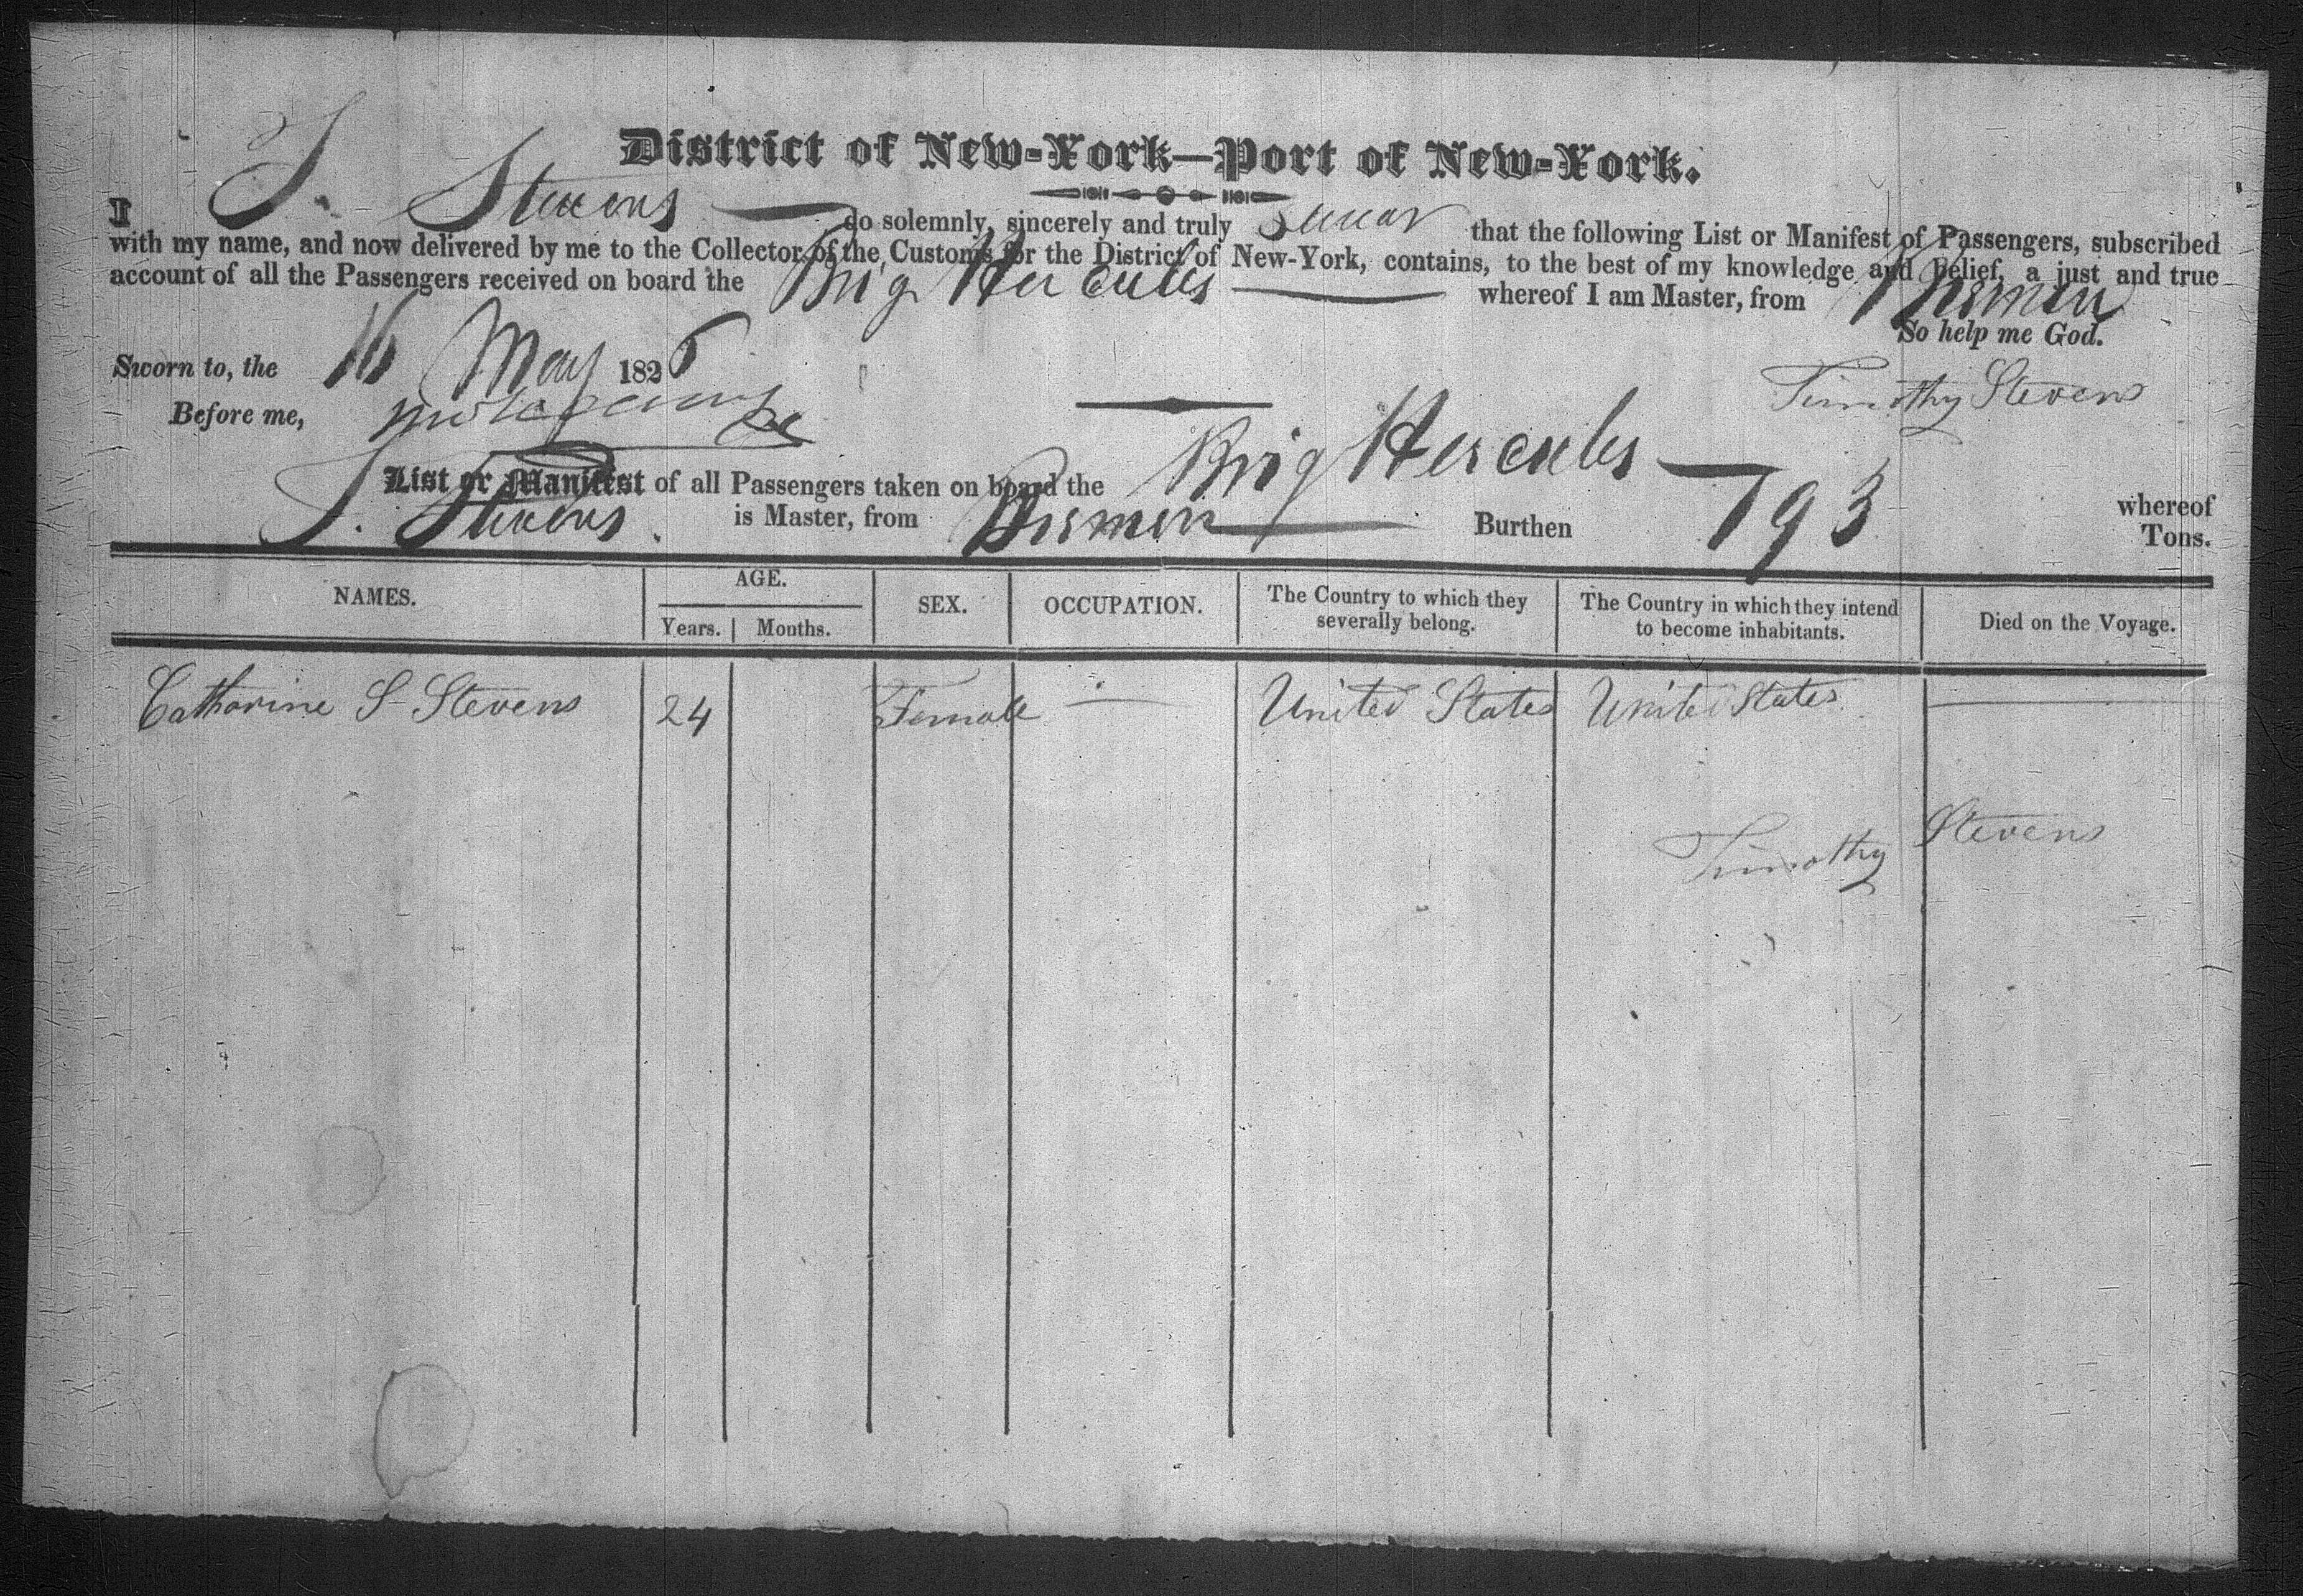 District of New-York—Port of New-York.
I T. Stevens do solemnly, sincerely and truly Swear that the following List or Manifest of Passengers, subscribed
with my name, and now delivered by me to the Collector of the Customs for the District of New-York, contains, to the best of my knowledge and belief, a just and true
account of all the Passengers received on board the Brig Hercules whereof I am Master, from Bremen
So help me God.
Sworn to, the 16 May 1826
Timothy Stevens
Before me,
List or Manifest of all Passengers taken on board the Brig Hercules whereof
T. Stevens is Master, from Bremen Burthen 193 Tons.
NAMES. AGE. SEX. OCCUPATION. The Country to which they severally belong. The Country in which they intend to become inhabitants. Died on the Voyage.
Years. Months.
Catharine S Stevens 24 Female — United States United States —
Timothy Stevens